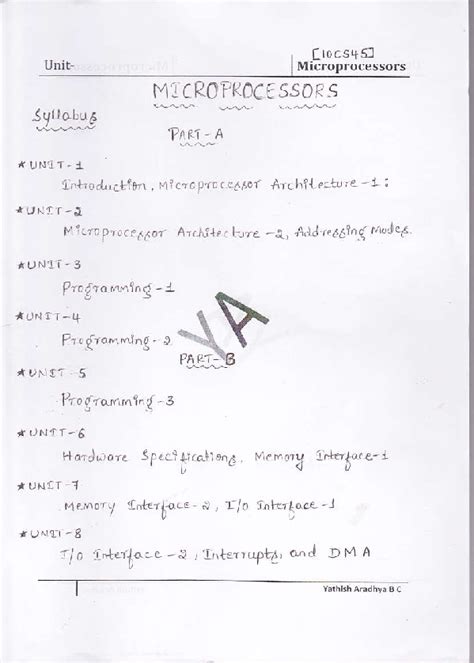 [10CS45]
Unit- Microprocessors
MICROPROCESSORS
Syllabus
PART-A
*UNIT-1
Introduction, Microprocessor Architecture -1:
*UNIT-2
Microprocessor Architecture -2, Addressing Modes.
*UNIT-3
Programming -1
*UNIT-4
Programming -2
YA
PART-B
*UNIT-5
Programming -3
*UNIT-6
Hardware Specifications, Memory Interface-1
*UNIT-7
Memory Interface-2, I/O Interface -1
*UNIT-8
I/O Interface -2, Interrupts, and DMA
Yathish Aradhya B C